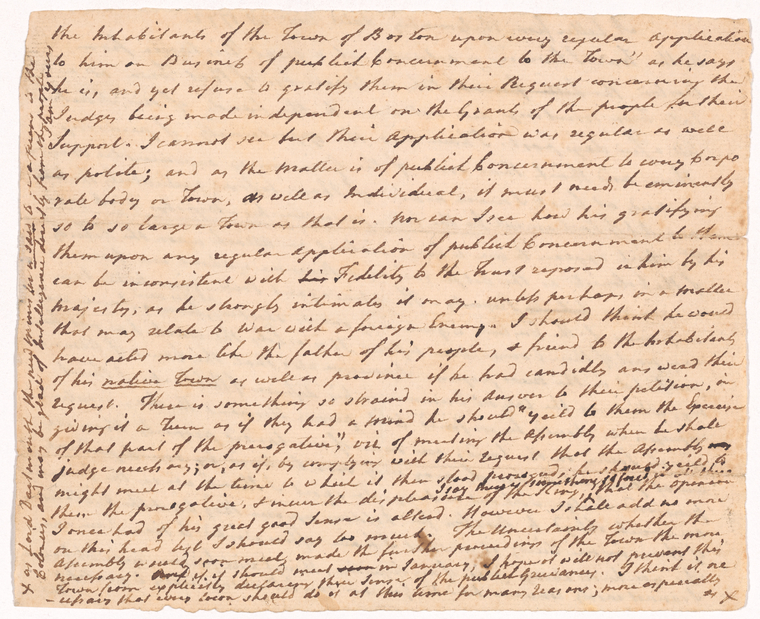 the Inhabitants of the Town of Boston upon every regular Application
to him on Business of publick Concernment to the Town" as he says
he is, and yet refuse to gratify them in their Request concerning the
Judges being made independent on the Grants of the people for their
Support. I cannot see but their Application was regular as well
as polite; and as the Matter is of publick Concernment to every Corpo
rate body or Town, as well as Individual, it must needs be eminently
so to so large a Town as that is. Nor can I see how his gratifying
them upon any regular Application of publick Concernment to them
can be inconsistent with his Fidelity to the Trust reposed in him by his
Majesty, as he strongly intimates it may. unless perhaps in a matter
that may relate to War with a foreign Enemy. I should think he would
have acted more like the father of his people, & friend to the Inhabitants
of his native Town as well as province if he had candidly answerd their
request. There is something so straind in his Answer to their petition, in
giving it a Turn as if they had a mind he should "yeild to them the Exercise
of that part of the prerogative", viz of meeting the Assembly when he shall
judge necessary; or, as if, by complying with their request that the Assembly
might meet at the time to which it then stood prorogued, he should yeild to
them the prerogative, & incur the displeasure of the King, that the opinion
I once had of his great good Sense is alterd. However I shall add no more
on this head lest I should say too much. The Uncertainty whether the
Assembly would meet, made the further proceedings of the Town the more
necessary. if it should meet in January, I hope it will not prevent this
Town from explicitly declaring their Sense of the publick Grievances. I think it ne
cessary that every town should do it at this time for many reasons; more especially
as X
X as Lord Dartmouth the new minister is said to a person in the
Colonies, and may be glad of Intelligence directly from the people